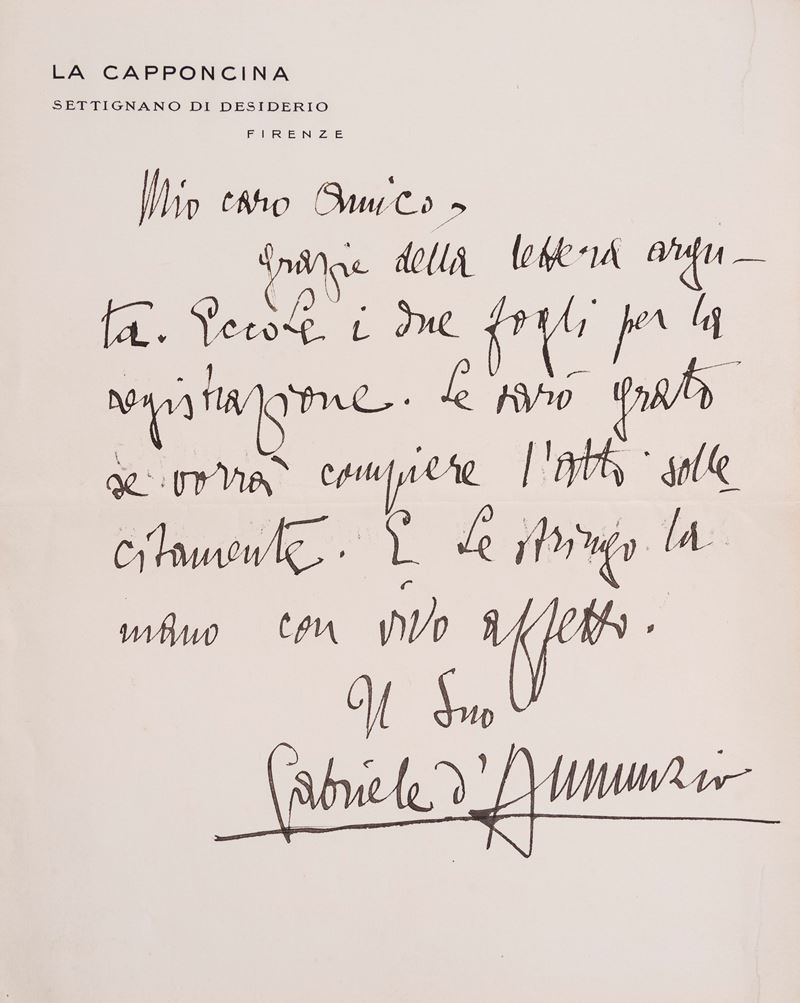 LA CAPPONCINA
SETTIGNANO DI DESIDERIO
FIRENZE
Mio caro Amico,
grazie della lettera argu-
ta. EccoLe i due fogli per la
registrazione. Le sarò grato
se vorrà compiere l'atto solle-
citamente. E Le stringo la
mano con vivo affetto.
Il Suo
Gabriele d'Annunzio